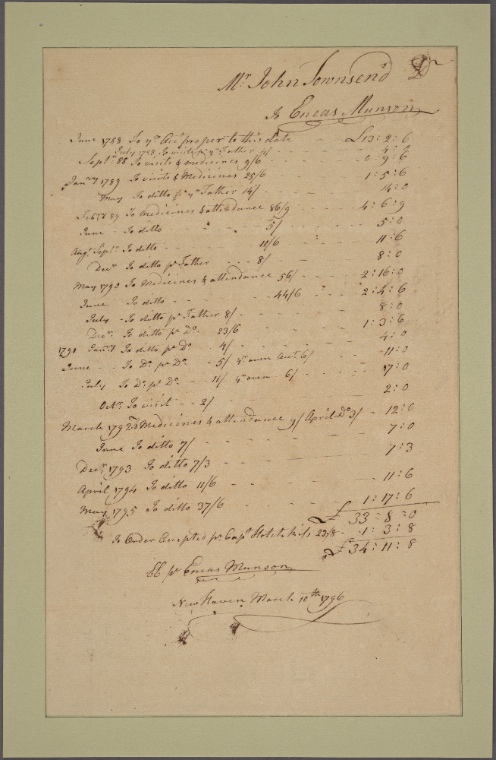 Mr. John Townsend Dr
To Eneas Munson
June 1788 To yr Acct proper to this date - - £13:2:6
July 1788 To visits pr yr Father 4/ 4:0
Septr 88 To visits & medicines 9/6 - - 0:9:6
Janry 1789 To visits & Medicines 25/6 - - 1:5:6
May To ditto pr yr Father 14/ - - 14:0
89 To Medicines & attendance 86/9 - - 4:6:9
June - To ditto 5/ - - 5:0
Augt Septr To ditto - - 11/6 - - 11:6
Decr To ditto pr Father - 8/ - - 8:0
May 1790 To Medicines & attendance 56/ - - 2:16:0
June To ditto - - 44/6 - - 2:4:6
July - To ditto pr Father 8/ - - 8:0
Decr To ditto pr Do 23/6 - - 1:3:6
1791 Janry To ditto pr Do 4/ - - 4:0
June - To Do pr Do - 5/ Augt 6/ - 11:0
July To Do pr Do - 11/ 6/ - - 17:0
Octr To visit - 2/ - - 2:0
March 1792 To Medicines & attendance 9/ April Do 3/ - 12:0
June To ditto 7/ - - 7:0
Decr 1793 To ditto 7/3 - - 7:3
April 1794 To ditto 11/6 - - 11:6
May 1795 To ditto 37/6 - - 1:17:6
£33:8:0
To Order Accepted pr Capt 23/8 - 1:3:8
£34:11:8
pr Eneas Munson
New Haven March 10th 1796